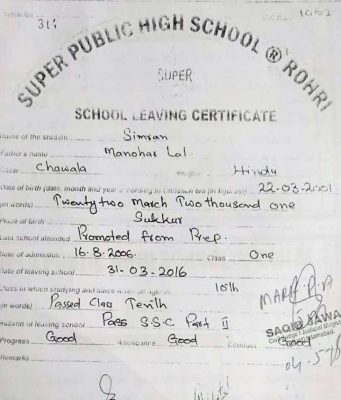 311
1062
SUPER PUBLIC HIGH SCHOOL ® ROHRI
SUPER
SCHOOL LEAVING CERTIFICATE
Name of the student Simran
Father's name Manohar Lal
Caste Chawala Hindu
Date of birth (date, month and year according to Christian era (in figures) 22-03-2001
(in words) Twenty two March Two thousand one
Place of birth Sukkur
Last school attended Promoted from Prep.
Date of admission 16.8.2006. Class One
Date of leaving school 31-03-2016
Class in which studying and since 10th
(in words) Passed Class Tenth
Reason of leaving school Pass S.S.C Part II
Progress Good Attendance Good Conduct Good
Remarks
SAQIB JAWA